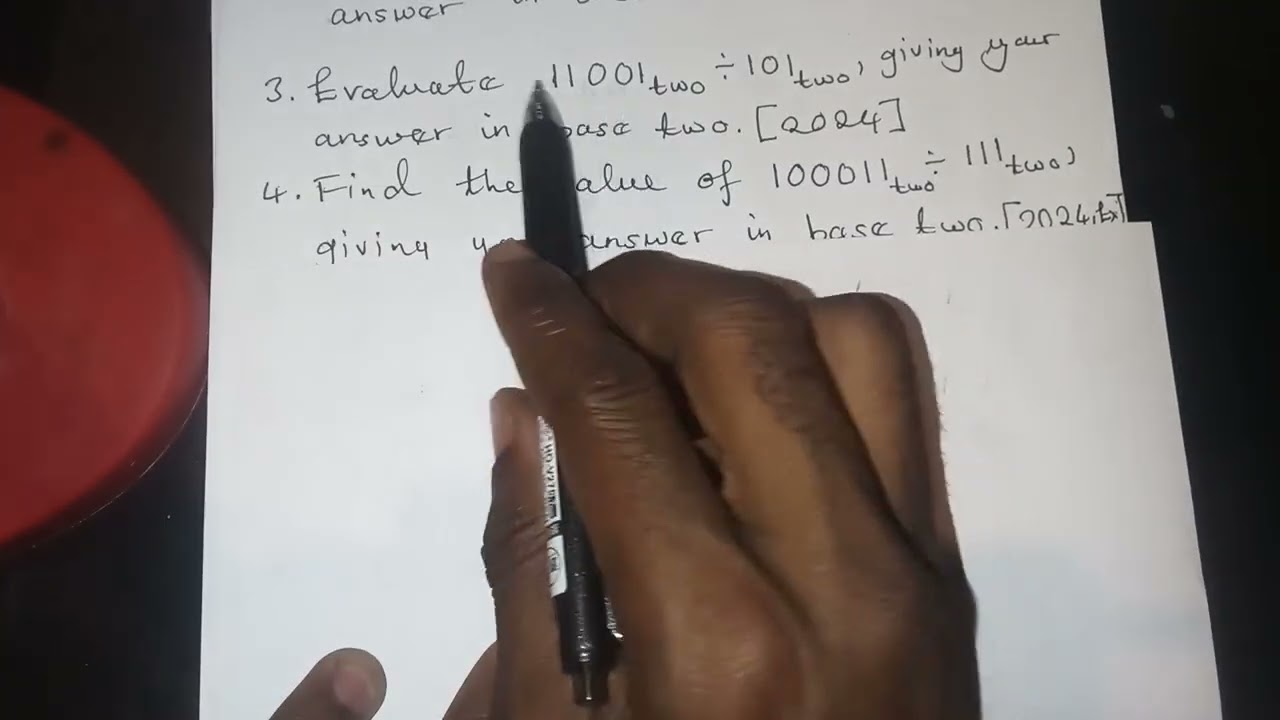 answer
3. Evaluate 11001two ÷ 101two, giving your
answer in base two. [2024]
4. Find the value of 100011two ÷ 111two,
giving answer in base two. [2024,